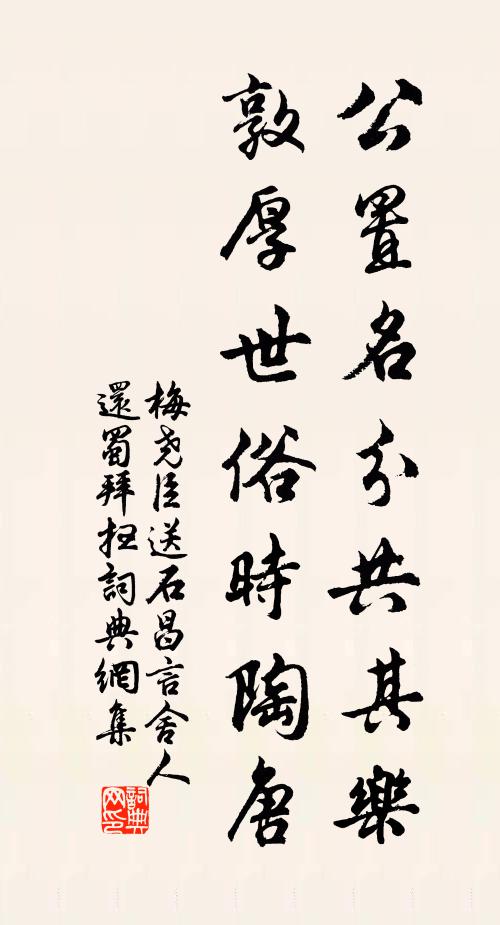 公置名分共其樂
敦厚世俗時陶唐
梅堯臣送石昌言舍人
還蜀拜掃詞典網集
詞典
网印